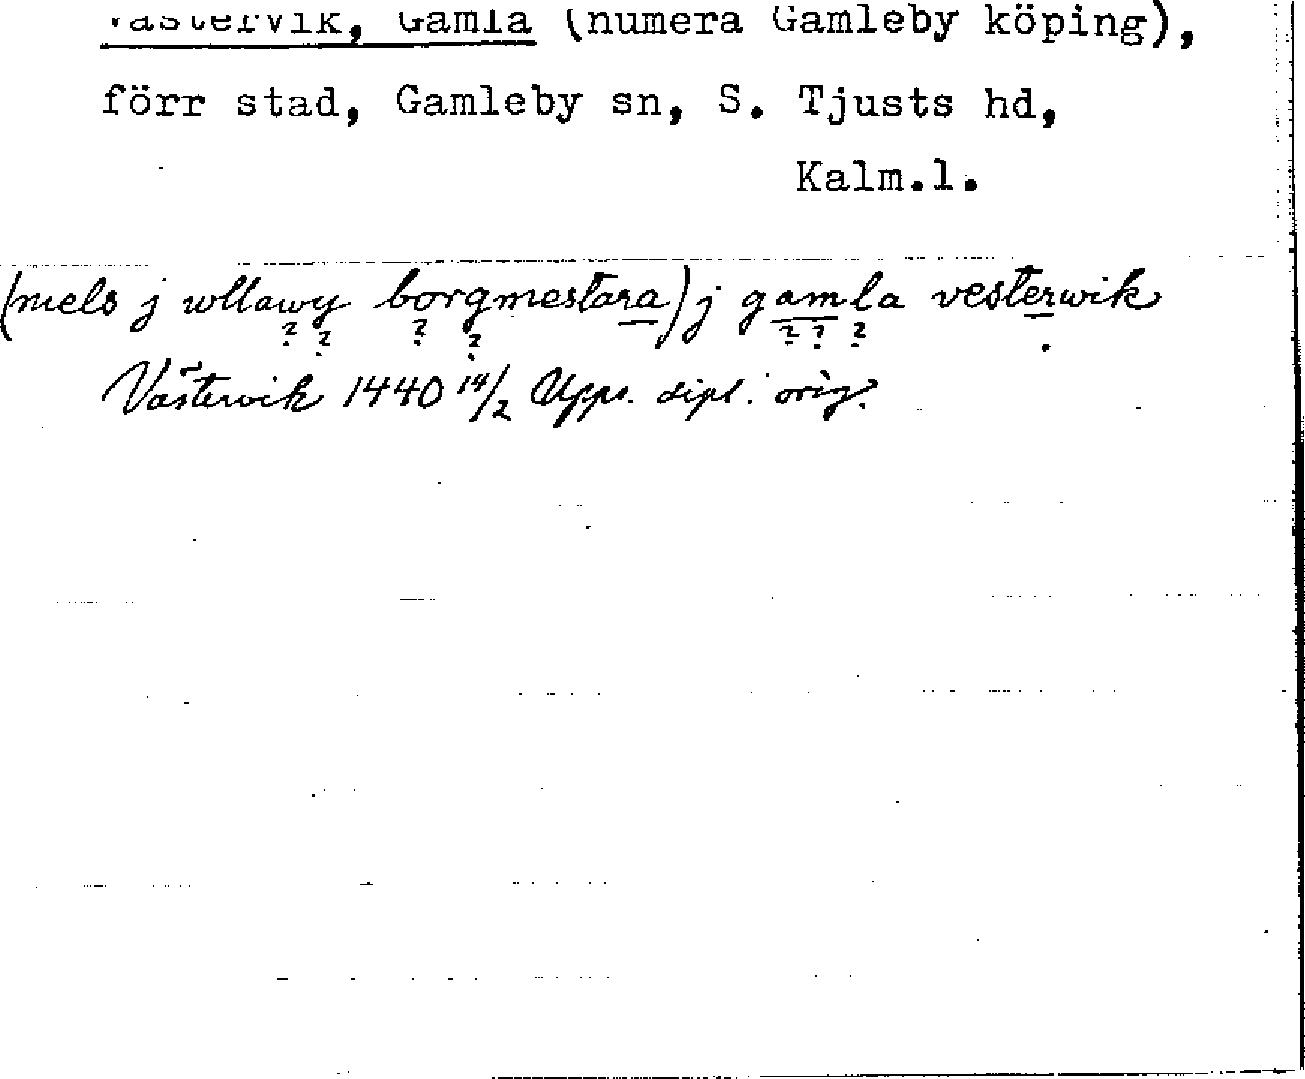 Västervik, Gamla (numera Gamleby köping),
förr stad, Gamleby sn, S. Tjusts hd,
Kalm.l.
(niels j wllawy borgmestara) j gamla vesterwik
? ? ? ? ? ? ?
Västervik 1440 14/2 Upps. dipl. orig.